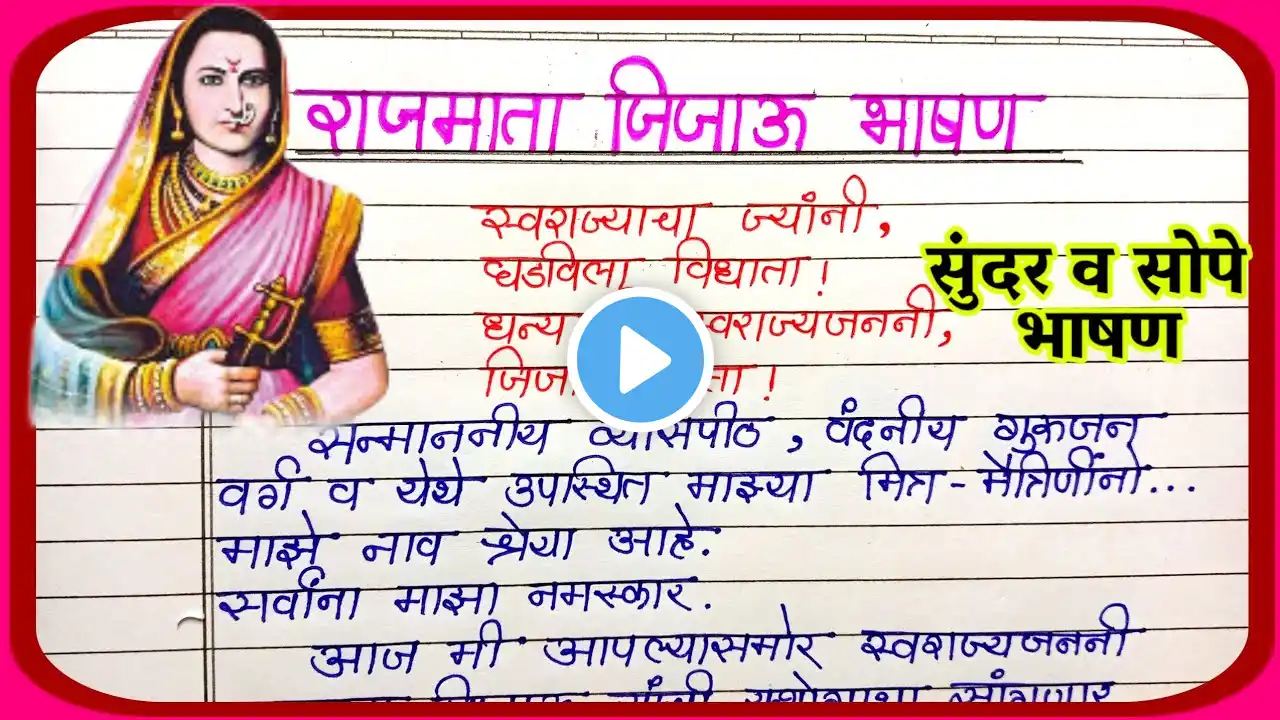 राजमाता जिजाऊ भाषण
स्वराज्याचा ज्यांनी,
घडविला विधाता!
धन्य स्वराज्यजननी,
सुंदर व सोपे
भाषण
सन्माननीय व्यासपीठ, वंदनीय गुरुजन
वर्ग व येथे उपस्थित माझ्या मित्र-मैत्रिणींनो...
माझे नाव श्रेया आहे.
सर्वांना माझा नमस्कार.
आज मी आपल्यासमोर स्वराज्यजननी